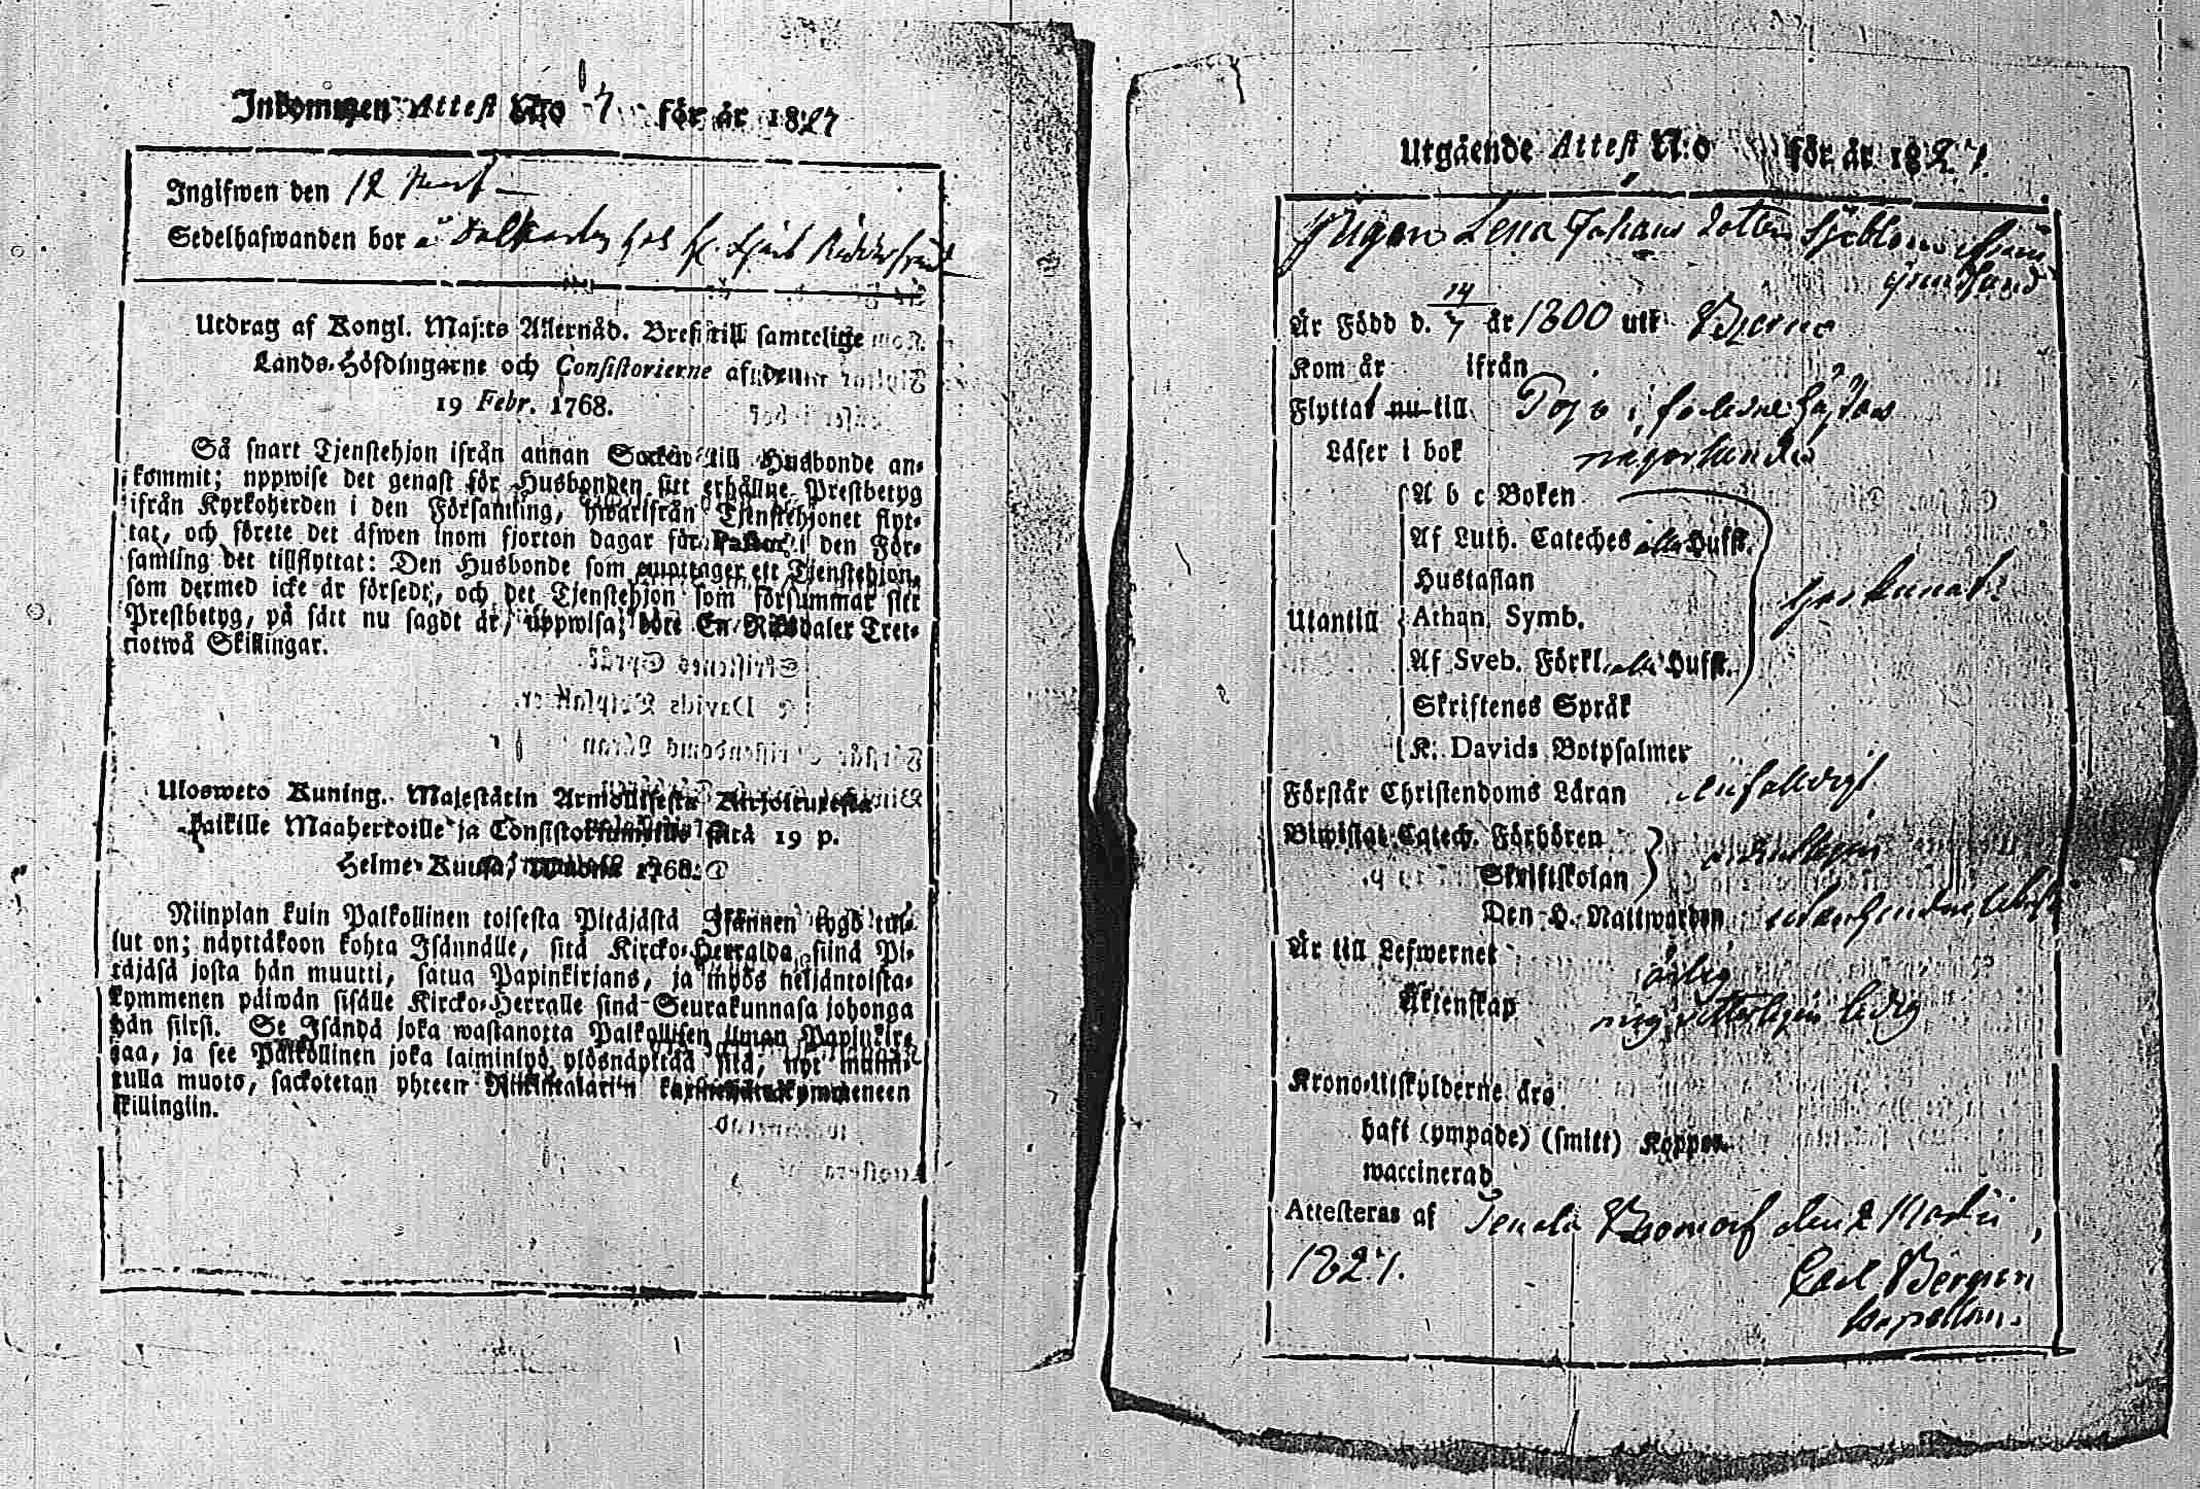 Inkommen Attest No 7 för år 1827
Ingifwen den 12 Mart
Sedelhafwanden bor å Dalkarby hos
Utdrag af Kongl. Maj:ts Allernåd. Bref till samtelige
Lands-Höfdingarne och Consistorierne af den
19 Febr. 1768.
Så snart Tjenstehjon ifrån annan Socken till Husbonde an-
kommit; uppwise det genast för Husbonden sitt erhållne Prestbetyg
ifrån Kyrkoherden i den Församling, hwarifrån Tjenstehjonet flyt-
tat, och förete det äfwen inom fjorton dagar för Pastor i den För-
samling det tillflyttat: Den Husbonde som emottager ett Tjenstehjon,
som dermed icke är försedt, och det Tjenstehjon som försummar sitt
Prestbetyg, på sätt nu sagdt är, uppwisa; böte En Riksdaler Tret-
tiotwå Skillingar.
Ulosweto Kuning. Majestätin Armollisesta Kirjoituxesta
kaikille Maaherroille ja Consistoriumeille sitä 19 p.
Helme-Kuusa, Wuonna 1768.
Niinpian kuin Palkollinen toisesta Pitäjästä Isännen tygö tul-
lut on; näyttäkoon kohta Isännälle, sitä Kircko-Herralda siinä Pi-
täjäsä josta hän muutti, saatua Papinkirjans, ja myös neljäntoista-
kymmenen päiwän sisälle Kircko-Herralle siinä Seurakunnasa johonga
hän siirsi. Se Isändä joka wastanotta Palkollisen ilman Papinkir-
jaa, ja see Palkollinen joka laiminlyö ylösnäyttää sitä, nyt mainit-
tulla muoto, sackotetan yhteen Riikintalarin kaxineljättäkymmeneen
skillingiin.
Utgående Attest N:o för år 1827.
Pigan Lena Johans dotter Sjöblom ifrån
Är Född d. 14/7 år 1800 uti Bjerno
Kom år ifrån
Flyttat nu till Pojo i
Läser i bok någorlunda
A b c Boken
Af Luth. Cateches alla Hufst.
Hustaflan
Utantill Athan. Symb.
Af Sveb. Förkl. alla Hufst.
Skriftenes Språk
K. Davids Botpsalmer
Förstår Christendoms Läran enfaldigt
Biwistat Catech. Förhören
Skriftskolan
Den H. Nattwarden
Är till Lefwernet ärlig
Äktenskap mig wetterligen ledig
Krono-Utskylderne äro
haft (ympade) (smitt) Koppor.
waccinerad
Attesteras af Tenala Bromarf den 2 Martii
1827.
Carl Bergen
kapellan.